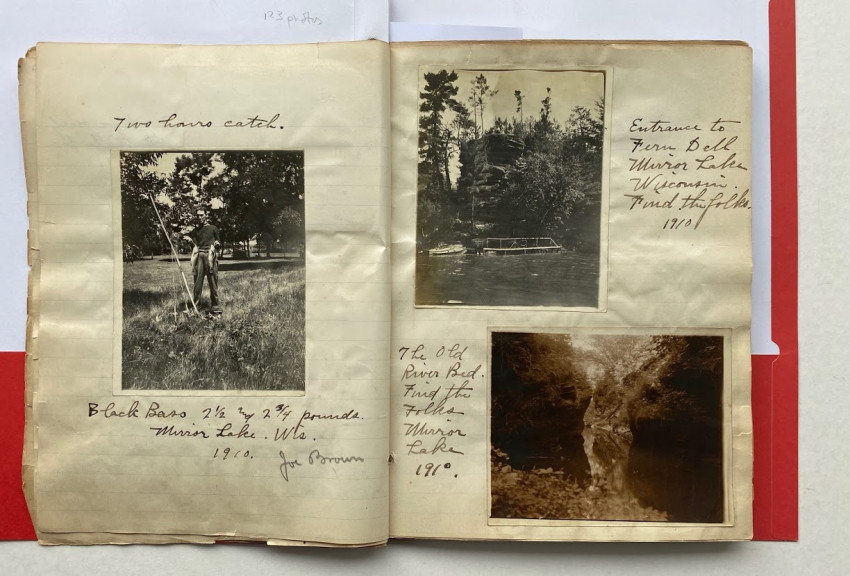 123 photos
Two hours catch.
Black Bass 2½ & 2¾ pounds.
Mirror Lake. Wis.
1910.
Joe Brown
Entrance to
Fern Dell
Mirror Lake
Wisconsin.
Find the folks.
1910
The Old
River Bed.
Find the
Folks
Mirror
Lake
1910.